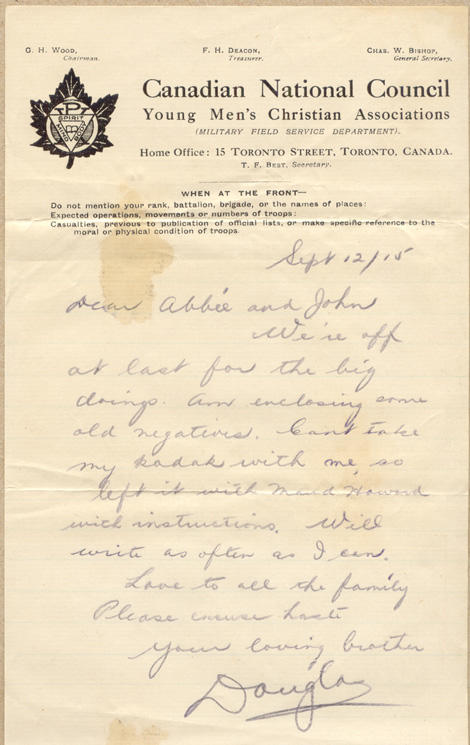 G. H. WOOD, Chairman.
F. H. DEACON, Treasurer.
CHAS. W. BISHOP, General Secretary.
SPIRIT
MIND BODY
Canadian National Council
Young Men's Christian Associations
(MILITARY FIELD SERVICE DEPARTMENT).
Home Office: 15 TORONTO STREET, TORONTO, CANADA.
T. F. BEST, Secretary.
WHEN AT THE FRONT—
Do not mention your rank, battalion, brigade, or the names of places:
Expected operations, movements or numbers of troops:
Casualties, previous to publication of official lists, or make specific reference to the
moral or physical condition of troops.
Sept 12/15
Dear Abbie and John
We're off
at last for the big
doings. Am enclosing some
old negatives. Cant take
my kodak with me, so
left it with Maud Howard
with instructions. Will
write as often as I can.
Love to all the family
Please excuse haste
Your loving brother
Douglas